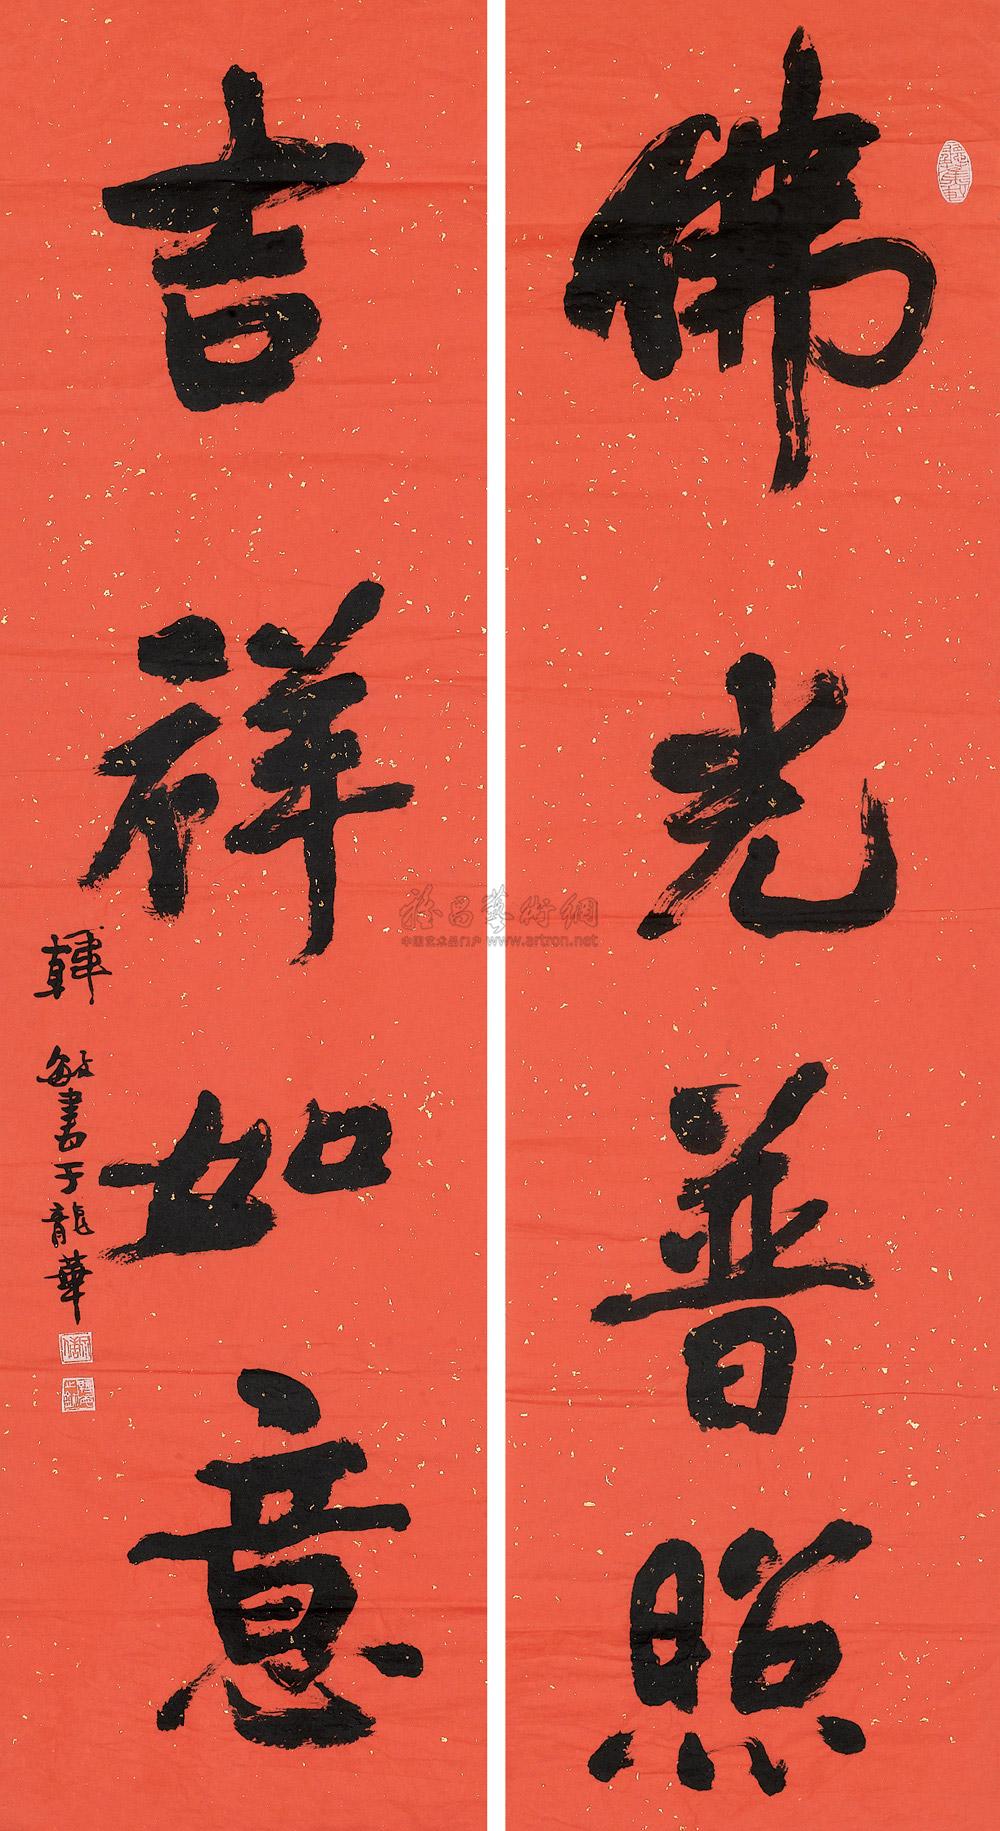 佛光普照
吉祥如意
韓敏書于龍華
雅昌藝術網
中国艺术品门户 www.artron.net